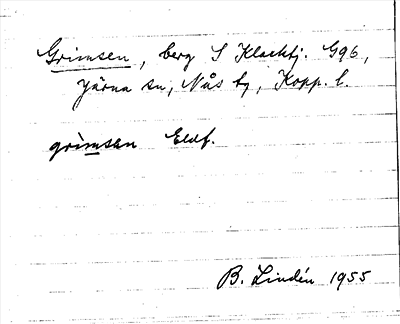 Grimsen, berg S Klacktj. G96,
Järna sn, Nås tg, Kopp. l.
grimsen Eldf.
B. Lindén 1955